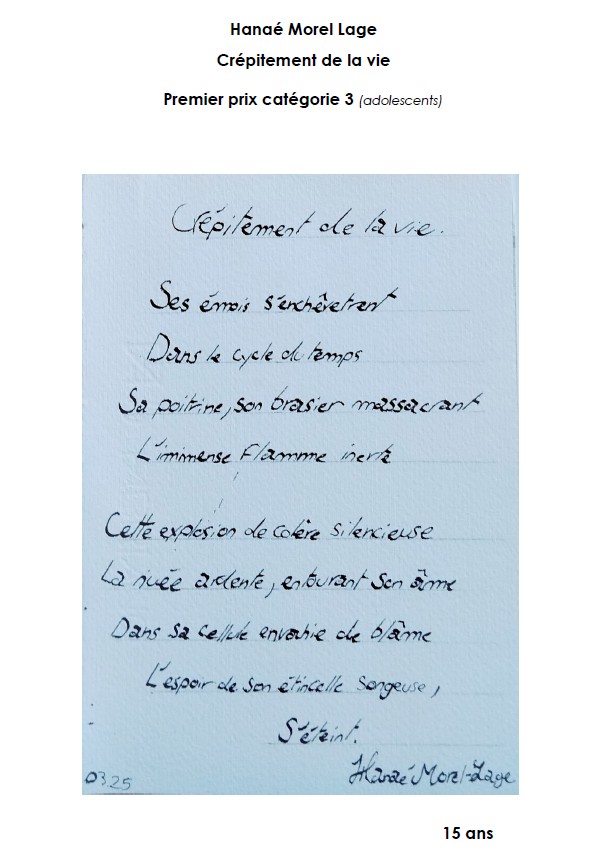 Hanaé Morel Lage
Crépitement de la vie
Premier prix catégorie 3 (adolescents)
Crépitement de la vie.
Ses émois s'enchêvetrant
Dans le cycle du temps
Sa poitrine, son brasier massacrant
L'immense flamme inerte
Cette explosion de colère silencieuse
La nuée ardente, entourant son âme
Dans sa cellule envahie de blâme
L'espoir de son étincelle songeuse,
S'éteint.
03.25
Hanaé Morel-Lage
15 ans